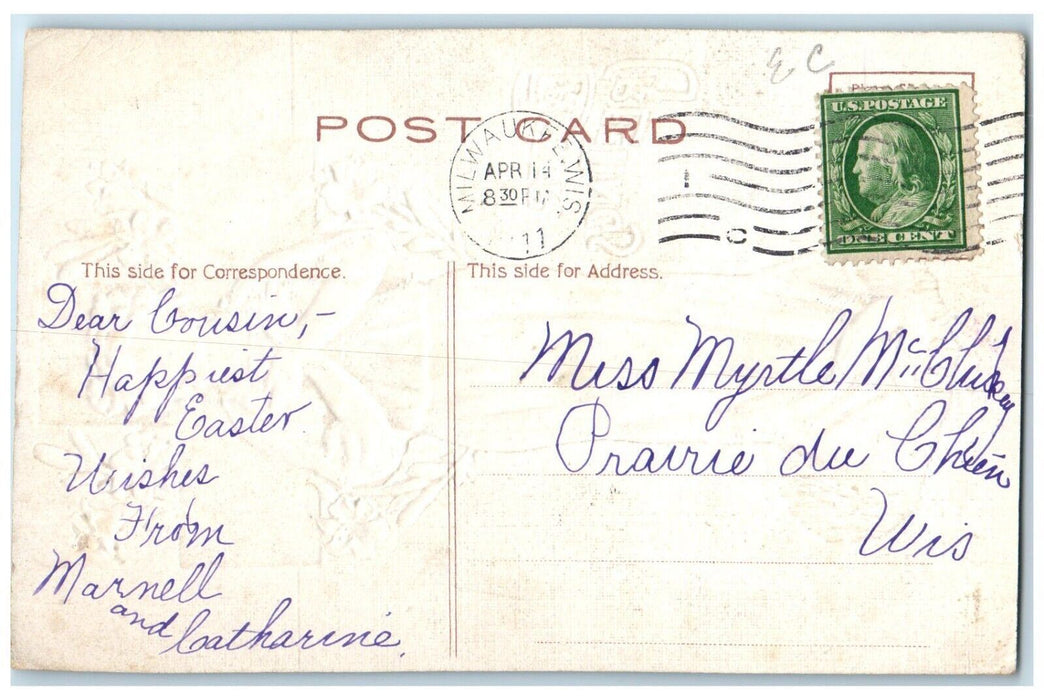 E C
POST CARD
MILWAUKEE, WIS.
APR 14
8 30 PM
11
U.S. POSTAGE
ONE CENT
This side for Correspondence.
Dear Cousin,-
Happiest
Easter
Wishes
From
Marnell
and
Catharine.
This side for Address.
Miss Myrtle McCluskey
Prairie du Chien
Wis